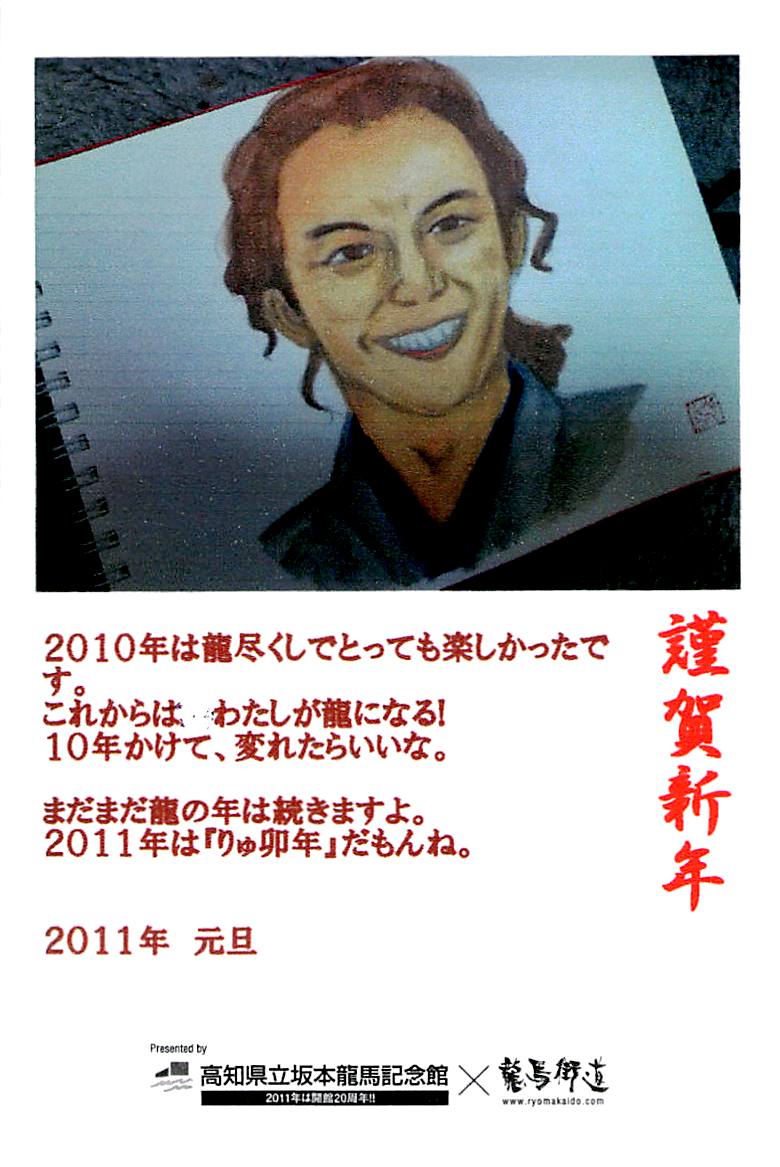 2010年は龍尽くしでとっても楽しかったで
す。
これからは わたしが龍になる!
10年かけて、変れたらいいな。
まだまだ龍の年は続きますよ。
2011年は『りゅ卯年』だもんね。
2011年 元旦
謹賀新年
Presented by
高知県立坂本龍馬記念館
2011年は開館20周年!!
×
龍馬街道
www.ryomakaido.com